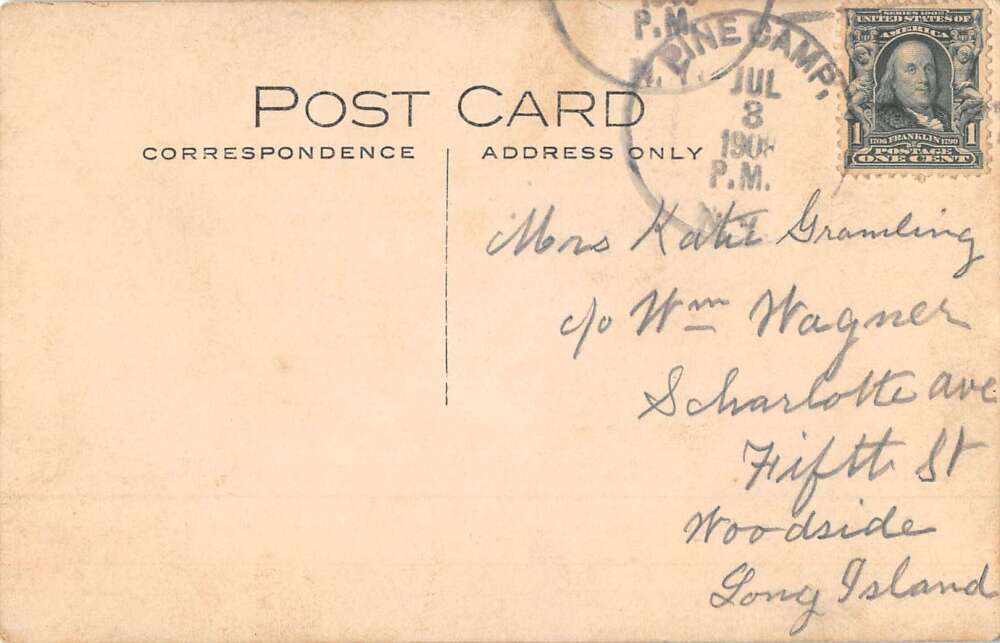 POST CARD
CORRESPONDENCE
ADDRESS ONLY
P.M.
PINE CAMP,
JUL
8
1908
P.M.
N.Y.
SERIES 1902
UNITED STATES OF
AMERICA
1 1706 FRANKLIN 1790 1
POSTAGE
ONE CENT
Mrs Katie Gramling
c/o Wm Wagner
Scharlotte ave
Fiftt St
Woodside
Long Island